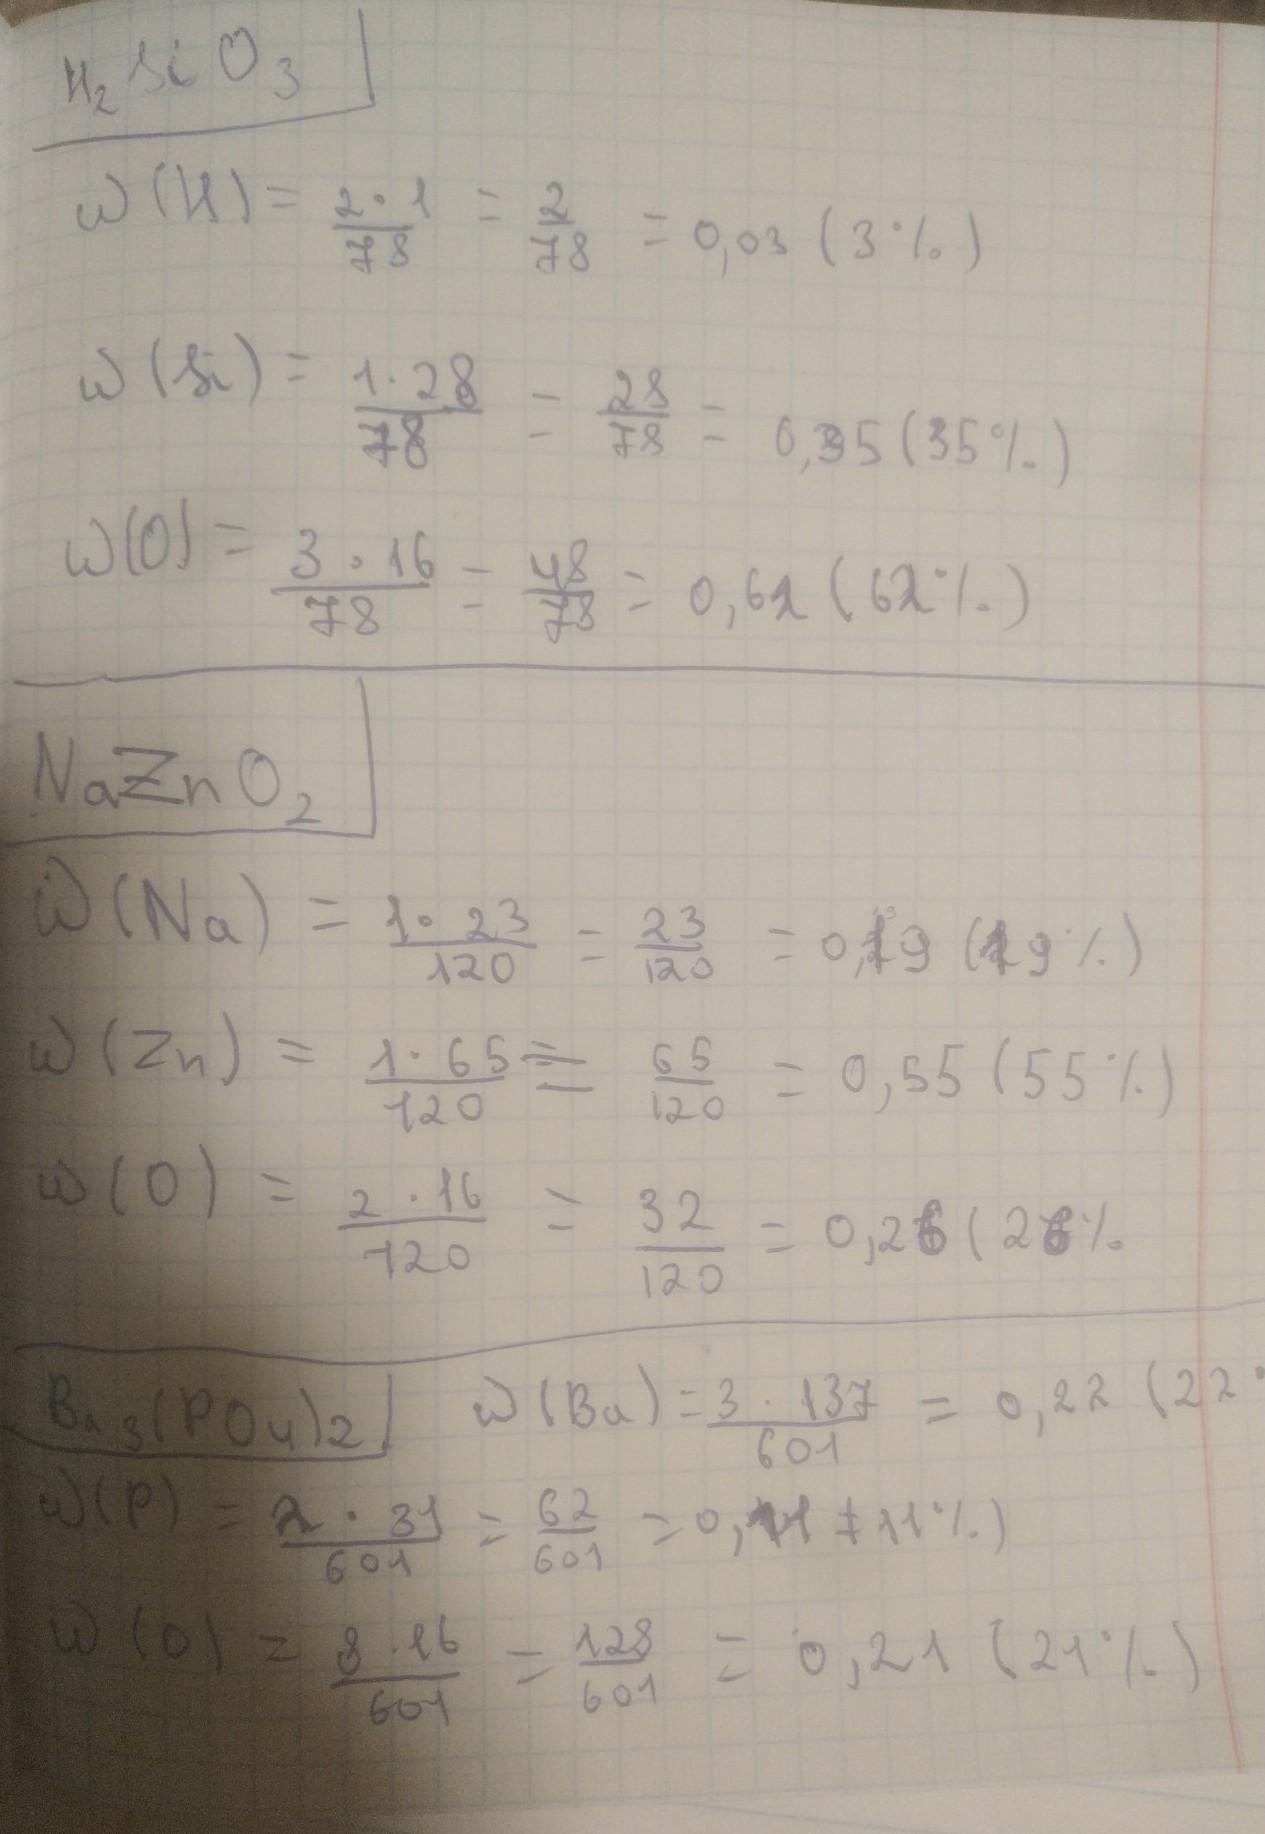 H₂SiO₃
ω(H) = 2·1/78 = 2/78 = 0,03 (3%)
ω(Si) = 1·28/78 = 28/78 = 0,35 (35%)
ω(O) = 3·16/78 = 48/78 = 0,62 (62%)
NaZnO₂
ω(Na) = 1·23/120 = 23/120 = 0,19 (19%)
ω(Zn) = 1·65/120 = 65/120 = 0,55 (55%)
ω(O) = 2·16/120 = 32/120 = 0,26 (26%
Ba₃(PO₄)₂ ω(Ba) = 3·137/601 = 0,22 (22%
ω(P) = 2·31/601 = 62/601 = 0,11 (11%)
ω(O) = 8·16/601 = 128/601 = 0,21 (21%)